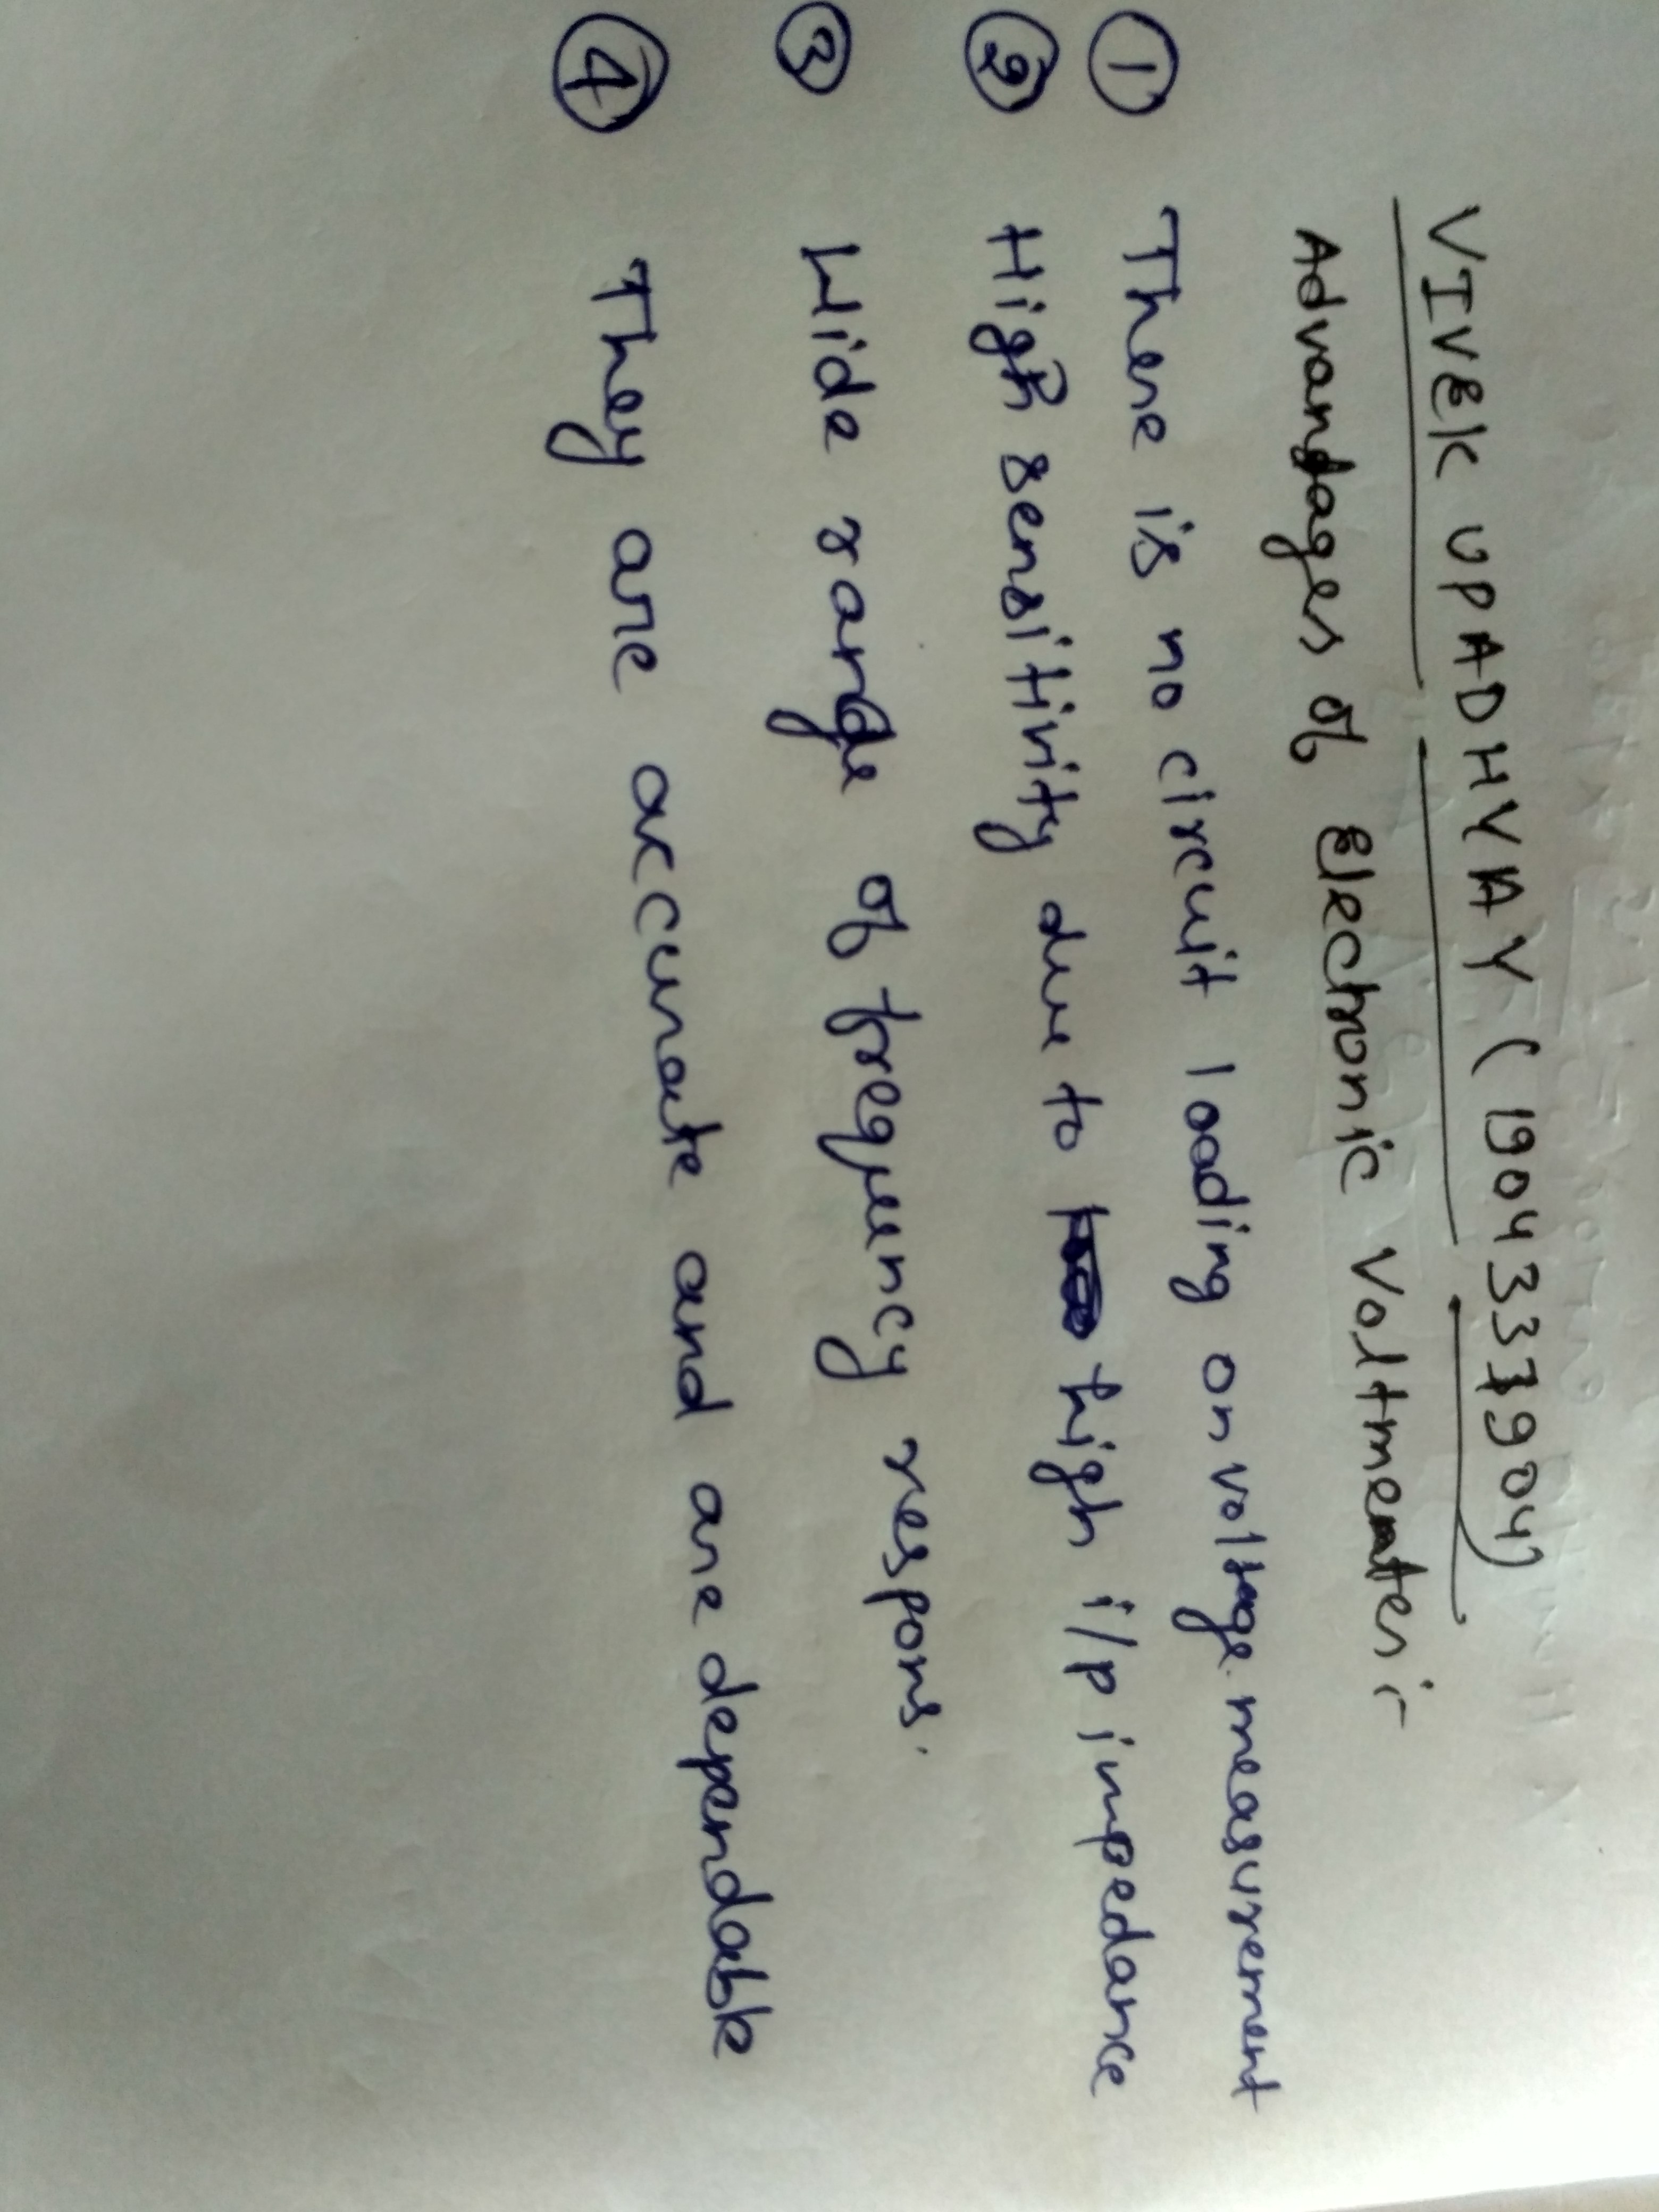 VIVEK UPADHYAY (1904337904)
Advandages of Electronic Voltmenter :-
① There is no circuit loading on voltage measurement
② High sensitivity due to high i/p impedance
③ Wide range of frequency respons.
④ They are accurate and are dependable